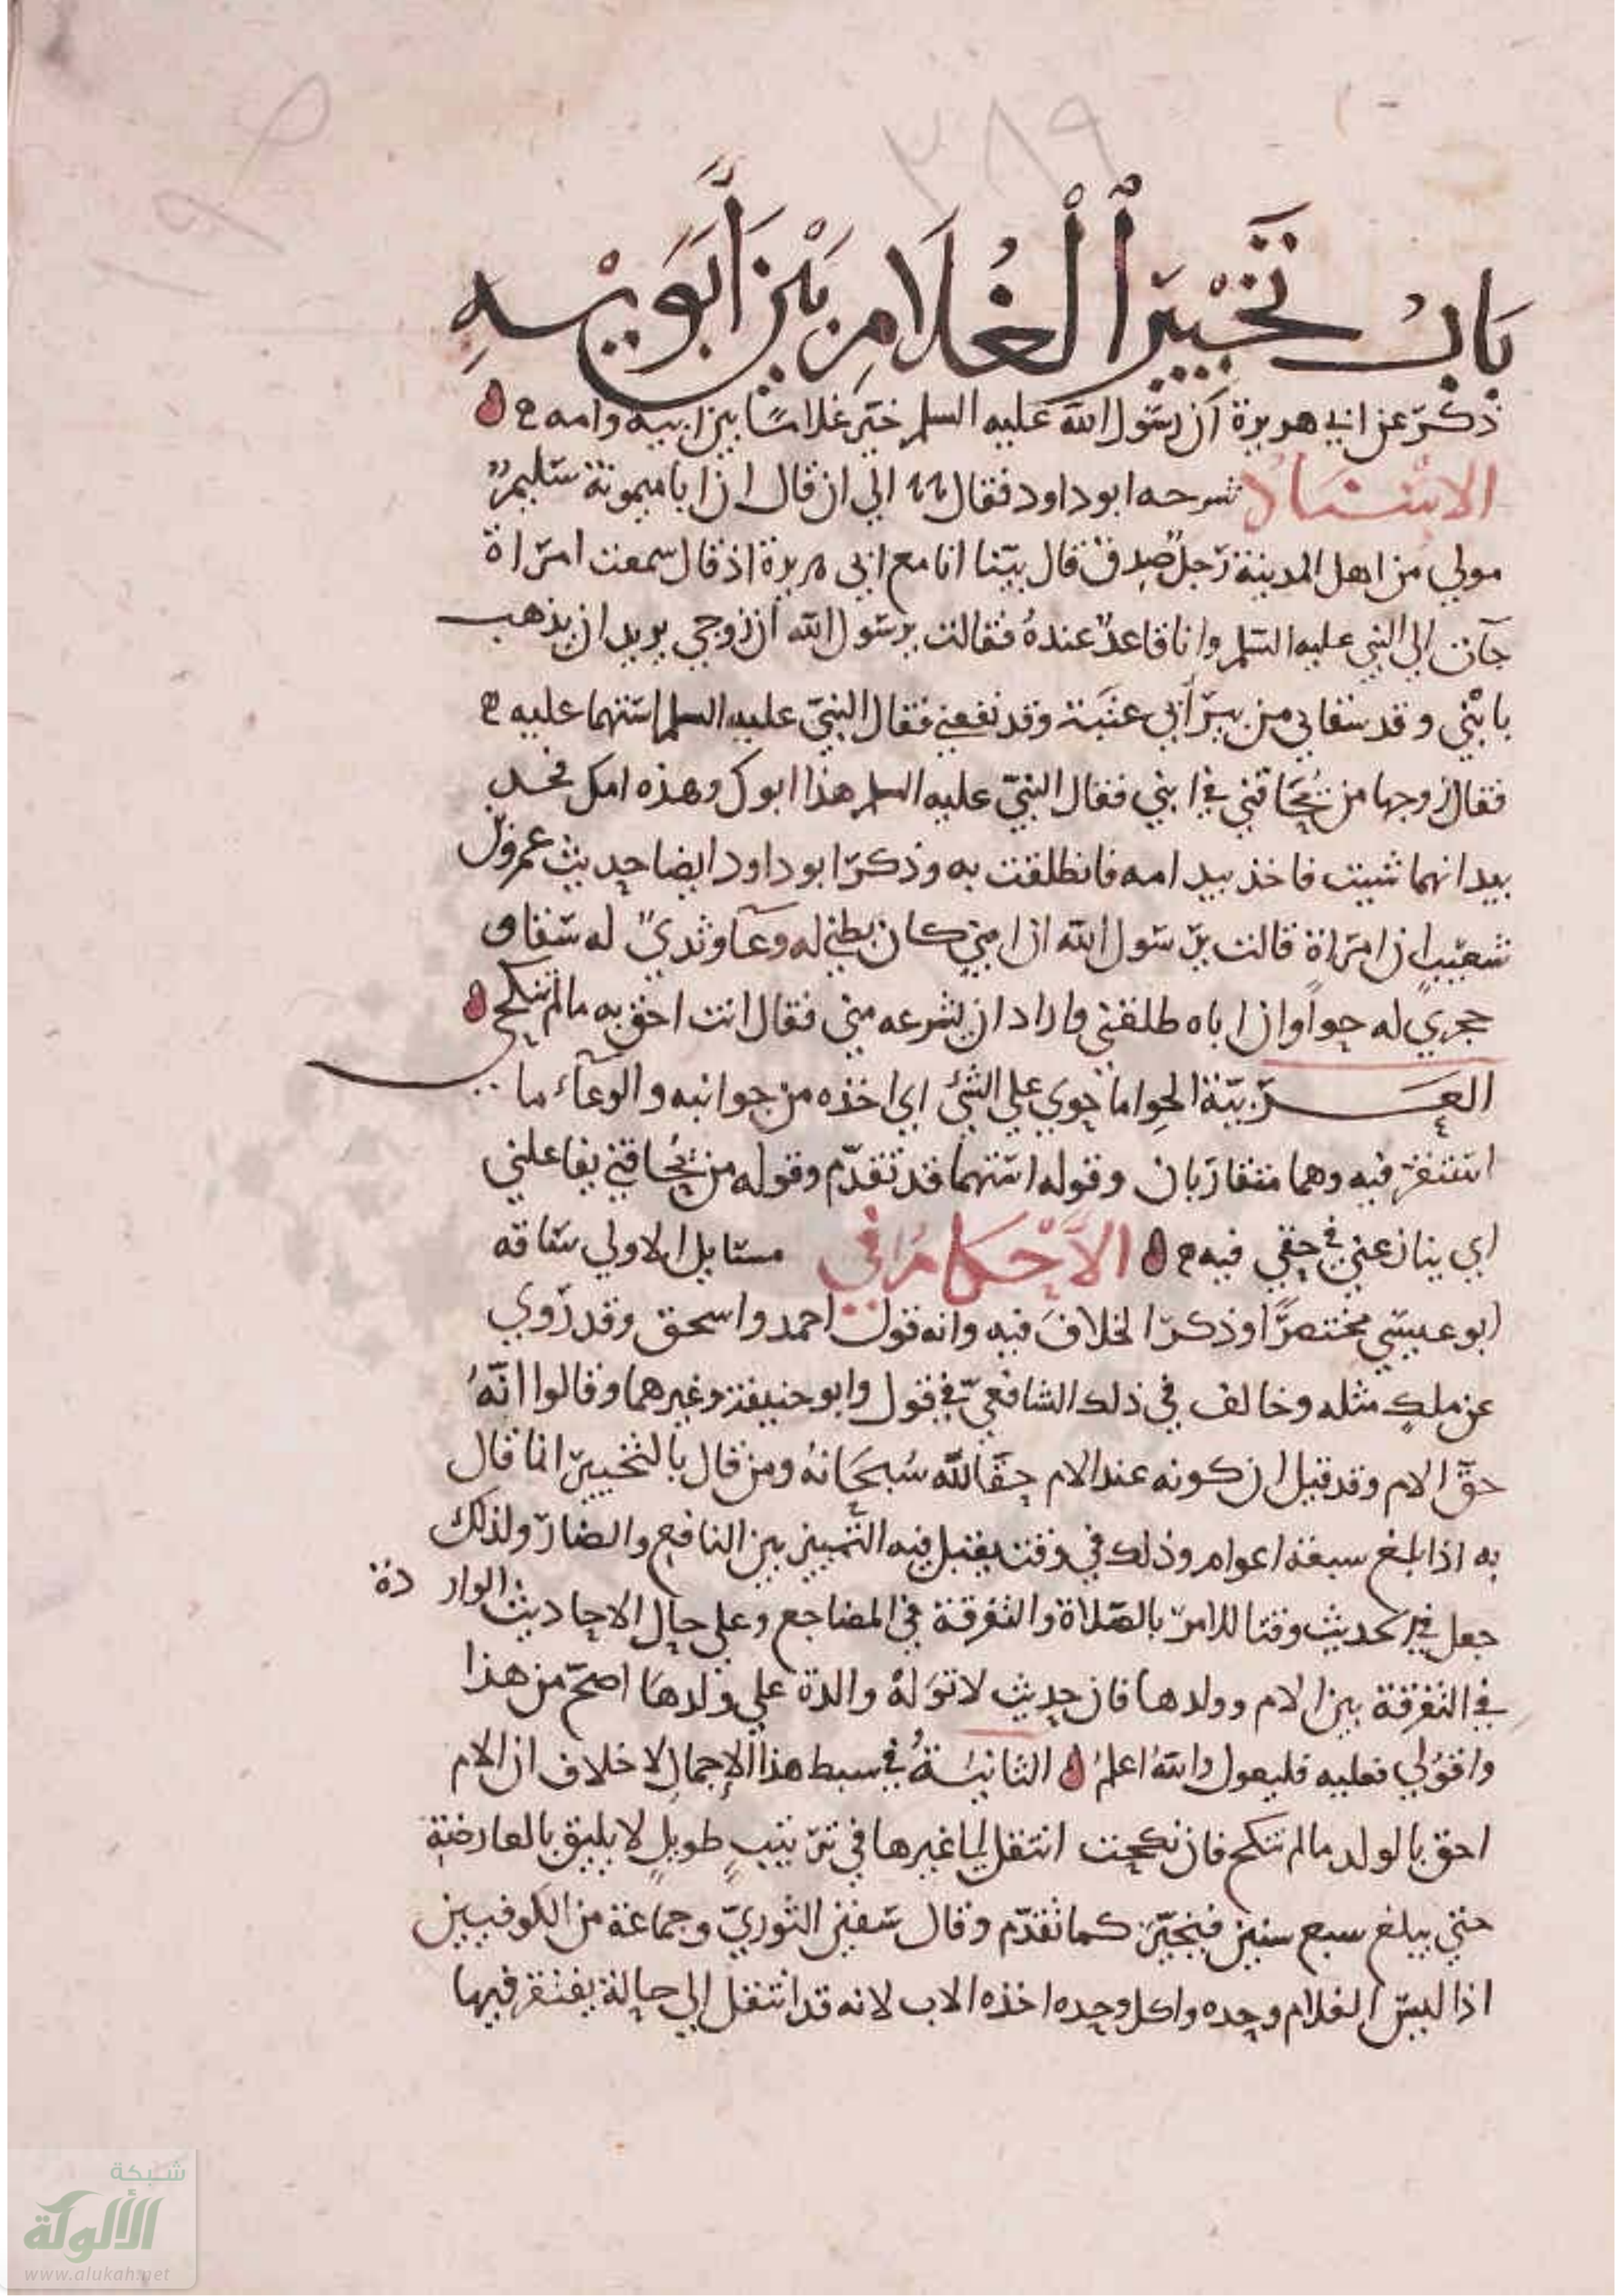 ٣٨٩
بَابُ تَخْيِيرِ ٱلْغُلَامِ بَيْنَ أَبَوَيْهِ
ذكر عن ابي هريرة ان رسول الله عليه السلم خير غلاما بين ابيه وامه ح
الاسناد شرحه ابو داود فقال الي ان قال ان ابا ميمونة سليم
مولي من اهل المدينة رجل صدق قال بينا انا مع ابي هريرة اذ قال سمعت امراة
جآت الي النبي عليه السلم وانا قاعد عنده فقالت يرسول الله ان زوجي يريد ان يذهب
بابني وقد سقاني من بير أبي عنبة وقد نفعني فقال النبي عليه السلم استهما عليه ح
فقال زوجها من يحاقني في ابني فقال النبي عليه السلم هذا ابوك وهذه امك فخذ
بيد ايهما شيت فاخذ بيد امه فانطلقت به وذكر ابو داود ايضا حديث عمرو بن
شعيب ان امراة قالت يرسول الله ان ابني كان بطني له وعآ وثديي له سقا و
حجري له حوا وان اباه طلقني واراد ان ينزعه مني فقال انت احق به ما لم تنكحي
العربية الحوا ما حوي علي الشئ اي اخذه من جوانبه والوعآء ما
استقر فيه وهما متقاربان وقوله استهما قد تقدم وقوله من يحاقني يفاعلني
اي ينازعني في حقي فيه ح الأحكام في مسايل الاولي ساقه
ابو عيسي مختصرا وذكر الخلاف فيه وانه قول احمد واسحق وقد روي
عن ملك مثله وخالف في ذلك الشافعي في قول وابو حنيفة وغيرهما وقالوا انه
حق الام وقد قيل ان كونه عند الام حق الله سبحانه ومن قال بالتخيير انما قال
به اذا بلغ سبعة اعوام وذلك في وقت يقبل فيه التمييز بين النافع والضار ولذلك
جعل في الحديث وقتا للامر بالصلاة والتفرقة في المضاجع وعلي حال الاحاديث الواردة
في التفرقة بين الام وولدها فان حديث لا توله والدة علي ولدها اصح من هذا
واقوي فعليه فليعول والله اعلم الثانية في بسط هذا الإجمال لا خلاف ان الام
احق بالولد ما لم تنكح فان نكحت انتقل الي غيرها في ترتيب طويل لا يليق بالعارضة
حتي يبلغ سبع سنين فيخير كما تقدم وقال سفين الثوري وجماعة من الكوفيين
اذا لبس الغلام وحده واكل وحده اخذه الاب لانه قد انتقل الي حالة يفتقر فيها
شبكة
الألوكة
www.alukah.net